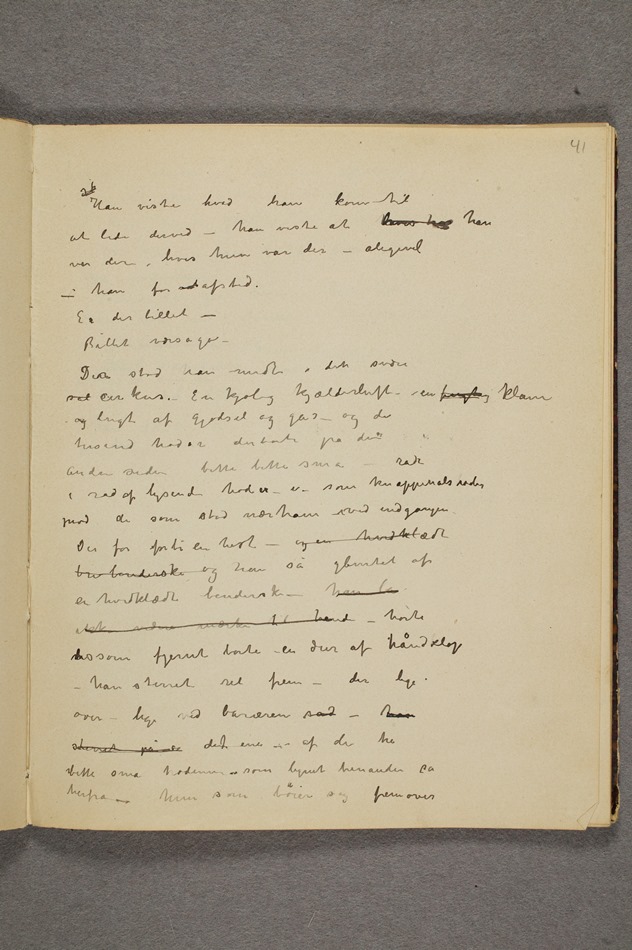 41
Han viste hvad han kom til
at lide derved – han viste at han
var der, hvis hun var der – aligevel
– han for afsted.
Er der billet –
Billet værsågo –
Der stod han midt i det svære
cirkus. – En kjølig kjælderluft – en klam
og lugt af gjødsel og gas – og de
tusend hoder derborte på den
anden siden bitte bitte små – rad
i rad af lysende hoder – som knappenålshoder
mod de som stod nær ham ved indgangen.
Der for forbi en hest – og en hvidklædt
beriderske og han så glimtet af
en hvidklædt beriderske – hørte
som fjernt borte en dur af håndklap
– han stirret ret frem – der lige
over – lige ved barieren –
det ene – af de
bitte små hoderne – som lignet hinanden
herfra – hun som bøier seg fremover